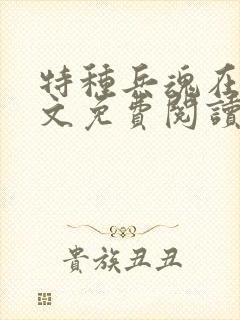 特種兵魂在
文免費閱讀
貴族丑丑